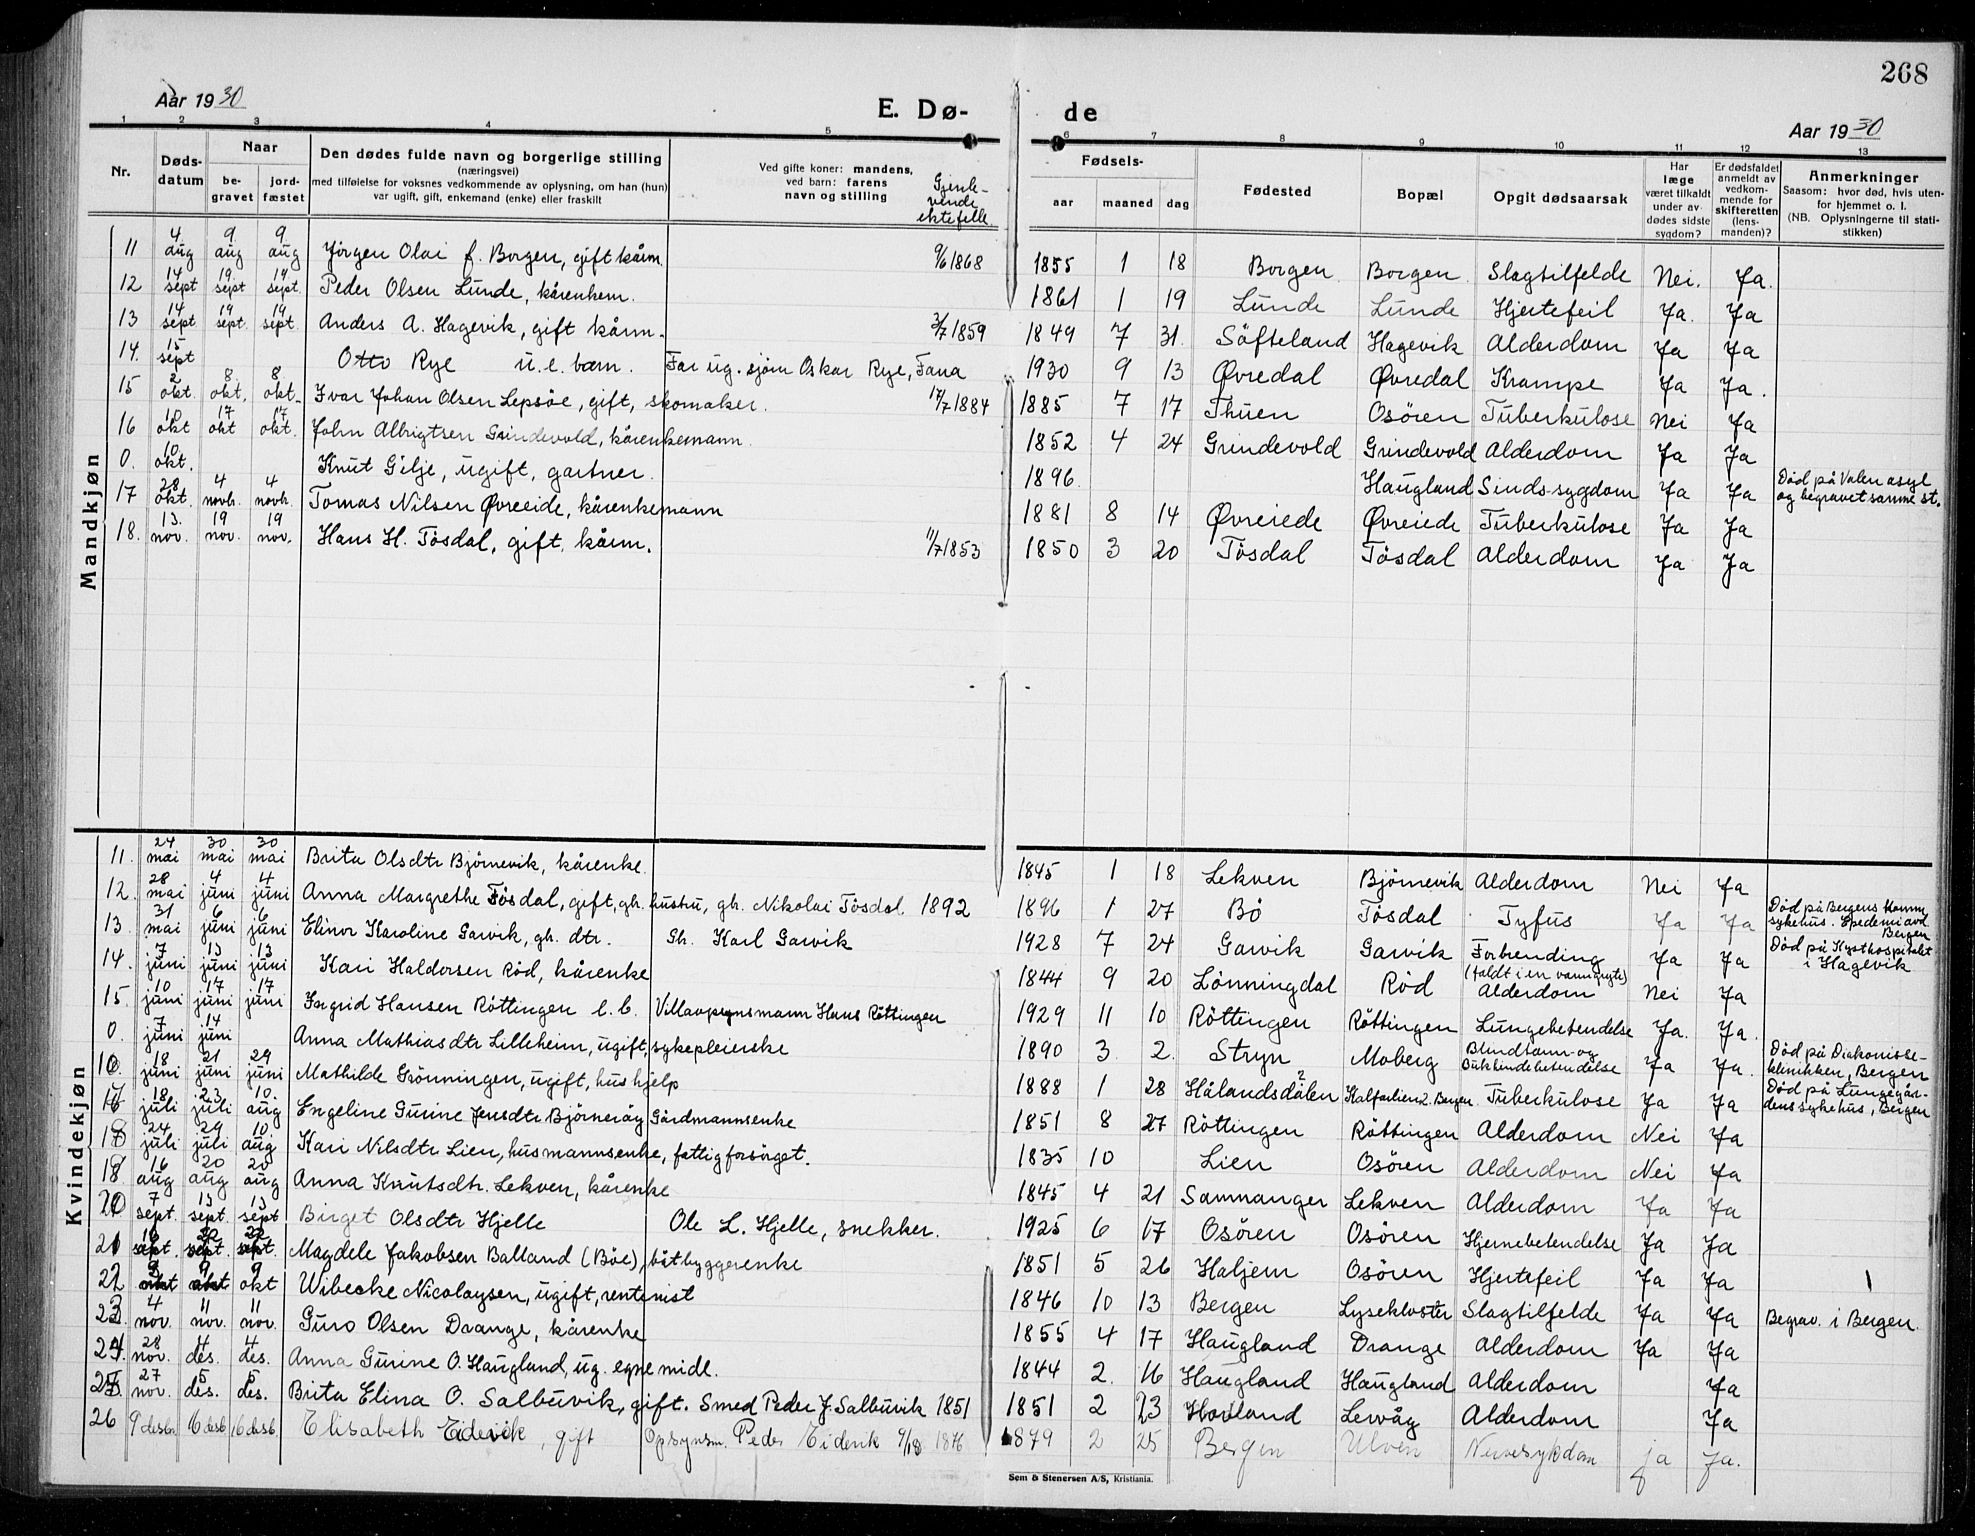 268
Aar 1930
E. Dø- de
Aar 1930
1 2 3 4 5 6 7 8 9 10 11 12 13
Nr.
Døds-
datum
Naar
be-
gravet
jord-
fæstet
Den dødes fulde navn og borgerlige stilling
(næringsvei)
med tilføielse for voksnes vedkommende av oplysning, om han (hun)
var ugift, gift, enkemand (enke) eller fraskilt
Ved gifte koner: mandens,
ved barn: farens
navn og stilling
Gjenle-
vende
ektefelle
Fødsels-
aar maaned dag
Fødested
Bopæl
Opgit dødsaarsak
Har
læge
været tilkaldt
under av-
dødes sidste
sygdom?
Er dødsfaldet
anmeldt av
vedkom-
mende for
skifteretten
(lens-
manden)?
Anmerkninger
Saasom: hvor død, hvis uten-
for hjemmet o. l.
(NB. Oplysningerne til stati-
stikken)
Mandkjøn
11 4 aug 9 aug 9 aug Jørgen Olai f. Borgen, gift kårm. 9/6 1868 1855 1 18 Borgen Borgen Slagtilfelde Nei. Ja.
12 14 sept 19 sept 19 sept. Peder Olsen Lunde, kårenkem. 1861 1 19 Lunde Lunde Hjertefeil Ja. Ja
13 14 sept 19 sept. 19 sept. Anders A. Hagevik, gift kårm. 3/7 1859 1849 7 31. Söfteland Hagevik Alderdom Ja Ja
14. 15 sept Otto Rye u.e. barn. Far ug. sjöm Oskar Rye, Fana 1930 9 13 Øvredal Øvredal Krampe Ja Ja.
15 2 okt. 8 okt. 8 okt. Ivar Johan Olsen Lepsöe, gift, skomaker. 17/7 1884 1885 7 17 Thuen Osören Tuberkulose Nei Ja
16 10 okt 17 okt 17 okt. John Albrigtsen Grindevold, kårenkemann. 1852 4 24 Grindevold Grindevold Alderdom Ja Ja
0. 10 okt. Knut Gilje, ugift, gartner. 1896. Haugland Sinds-sygdom Ja Ja Död på Valen asyl
og begravet samme st.
17 28 okt. 4 novb. 4 novb. Tomas Nilsen Øvreeide, kårenkemann 1881 8 14 Øvreiede Øvreiede Tuberkulose Ja Ja
18. 13. nov. 19 nov. 19 nov. Hans H. Tösdal, gift, kårm. 11/7 1853 1850 3 20 Tösdal Tösdal Alderdom Ja Ja
Kvindekjøn
11. 24 mai 30 mai 30 mai Brita Olsdtr Björnevik, kårenke. 1845 1 18 Lekven Björnevik Alderdom Nei Ja
12. 28 mai 4 juni 4 juni Anna Margrethe Tösdal, gift, gh. hustru, gh. Nikolai Tösdal 1892 1896 1 27 Bö Tösdal Tyfus Ja Ja Död på Bergens Komm.
sykehus. Epedemiavd.
Bergen
13. 31 mai 6 juni 6 juni Elinor Karoline Garvik, gh. dtr. Gh. Karl Garvik 1928 7 24 Garvik Garvik Forbrending
(faldt i en vanngryte) Ja Ja Död på Kysthospitalet
i Hagevik
14. 7 juni 13 juni 13 juni Kari Haldorsen Röd, kårenke 1844 9 20 Lönningdal Röd Alderdom Nei Ja
15. 10 juni 17 juni 17 juni Ingrid Hansen Röttingen e.b. Villaopsynsmann Hans Röttingen 1929 11 10 Röttingen Röttingen Lungebetendelse Ja. Ja.
0. 7 juni 14 juni Anna Mathiasdtr Lilleheim, ugift, sykepleierske 1890 3. 2. Stryn Moberg Blindtarm- og
Bukhindebetendelse Ja Ja. Död på Diakonisse-
klinikken, Bergen
16. 18 juni 21 juni 29 juni Mathilde Grönningen, ugift, hushjelp 1888 1 28 Hålandsdalen Kalfarlien 2. Bergen Tuberkulose Ja Ja Död på Lungegår-
dens sykehus, Bergen
17 18 juli 23 juli 10. aug Engeline Gurine Jensdtr Björneröy Gårdmannsenke 1851 8 27 Röttingen Röttingen Alderdom Nei Ja
18 24 juli 29 juli 10 aug Kari Nilsdtr Lien, husmannsenke, fattigforsörget. 1835 10 Lien Osören Alderdom Nei Ja
16 aug 20 aug 20 aug Anna Knutsdtr. Lekven, kårenke 1845 4 21 Samnanger Lekven Alderdom Ja Ja
20 7 sept. 13 sept. 13 sept Birget Olsdtr Hjelle Ole L. Hjelle, snekker. 1925 6 17 Osören Osören Hjernebetendelse Ja Ja
21 16 sept. 22 sept. 22 sept. Magdele Jakobsen Balland (Böe), båtbyggerenke 1851 5 26 Haljem Osören Hjertefeil Ja Ja
22 okt 9 okt 9 okt Wibecke Nicolaysen, ugift, rentenist 1846 10 13 Bergen Lysekloster Slagtilfelde Ja Ja Begrav. i Bergen.
23 4 nov. 11 nov. 11 nov. Guro Olsen Drange, kårenke 1855 4 17 Haugland Drange Alderdom Ja Ja
24. 28 nov. 4 des. 4 des. Anna Gurine O. Haugland, ug. egne midl. 1844 2. 16 Haugland Haugland Alderdom Ja
25 27 nov. 5 des. 5 des. Brita Elina O. Salbuvik, gift. Smed Peder J. Salbuvik 1851 1851 2 23 Hovland Lervåg Alderdom Ja
26 9 desbr. 16 desb. 16 desb. Elisabeth Eidevik, gift Opsynsm. Peder Eidevik 9/18 1876 1879 2 25 Bergen Ulven Nervesykdom ja Ja.
Sem & Stenersen A/S, Kristiania.